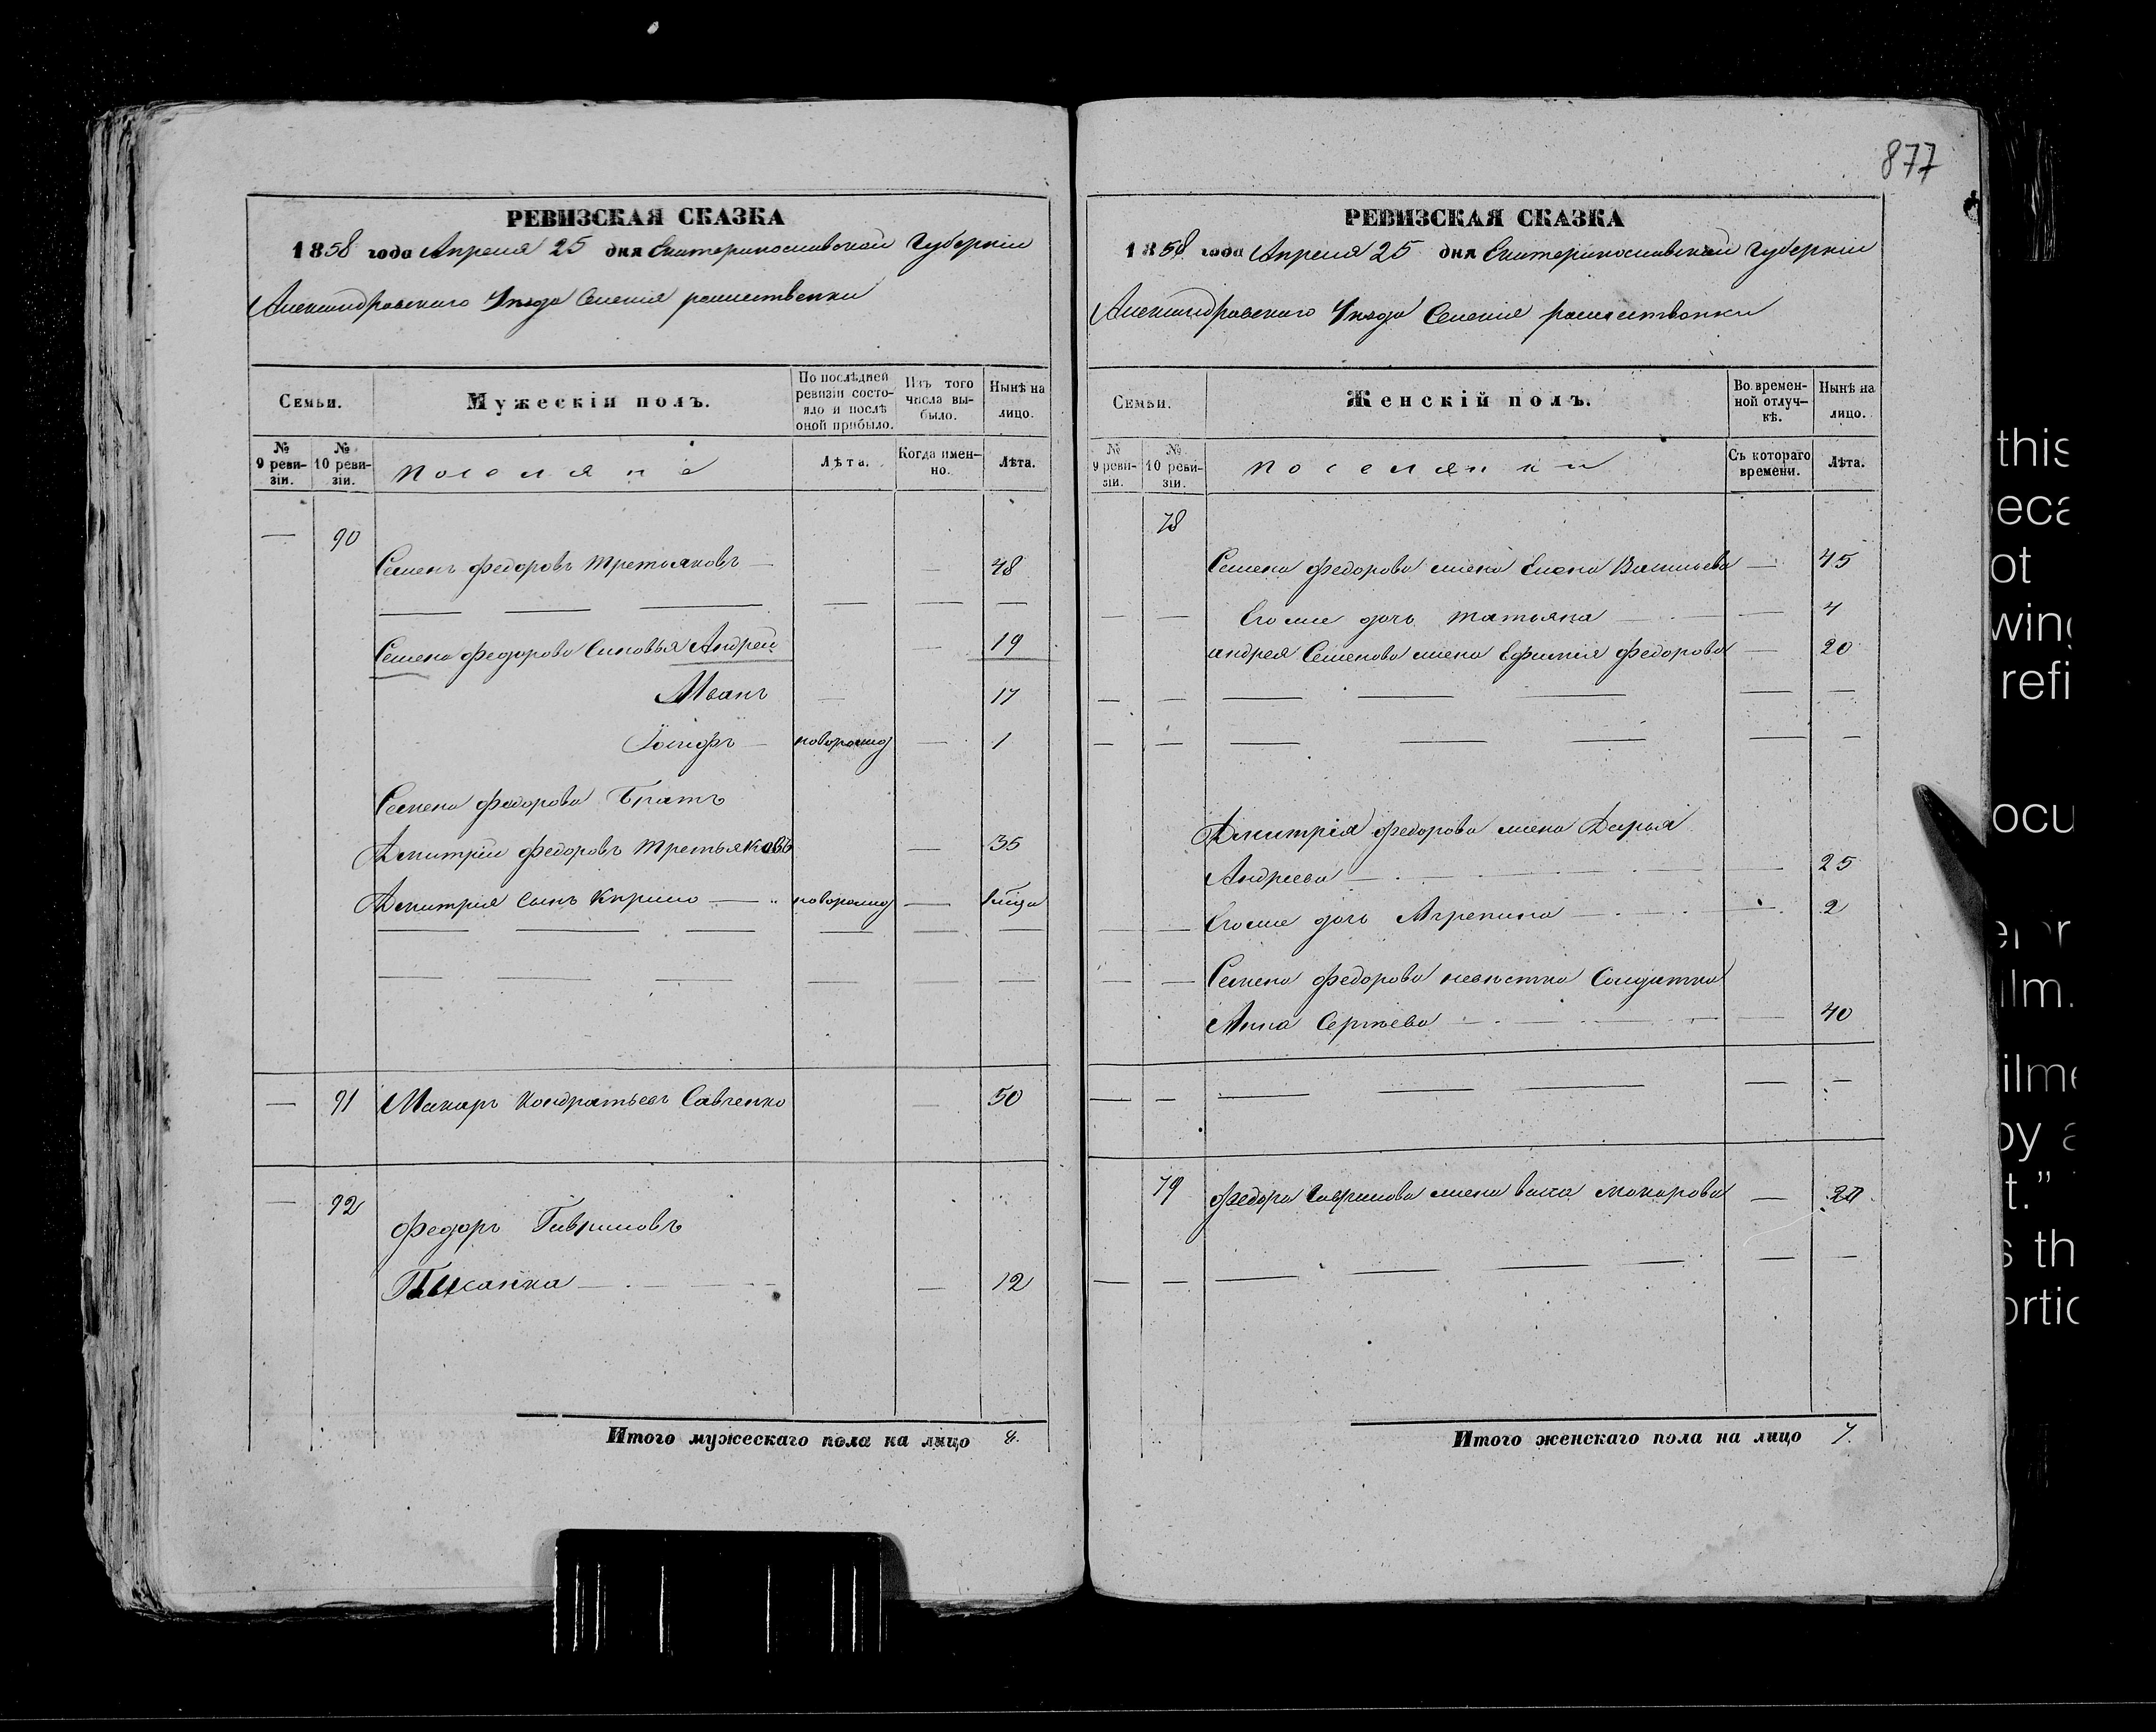 877
РЕВИЗСКАЯ СКАЗКА
1858 года Апреля 25 дня Екатеринославской Губернiи
Александровского Уезда Селенiя рашественки
Семьи.
Мужескiй полъ.
По послѣдней ревизiи состо-
яло и послѣ
оной прибыло.
Изъ того
числа вы-
было.
Нынѣ на
лицо.
№
9 реви-
зiи.
№
10 реви-
зiи.
поселяне
Лѣта.
Когда имен-
но.
Лѣта.
— 90
Семенъ Федоровъ Третьяковъ — — 48
Семена Федорова Сыновья Андрей — 19
Иванъ — 17
Iосифъ — новорожд — 1
Семена Федорова Братъ
Дмитрiй Федоровъ Третьяковъ — 35
Дмитрiя Сынъ Кирило — новорожд —
— 91 Макаръ Кондратьевъ Савченко — 50
— 92
Федоръ Гавриловъ
Пысанка — — 12
Итого мужескаго пола на лицо 8.
РЕВИЗСКАЯ СКАЗКА
1858 года Апреля 25 дня Екатеринославской Губернiи
Александровского Уезда Селенiя рашественки
Семьи.
Женскiй полъ.
Во времен-
ной отлуч-
кѣ.
Нынѣ на
лицо.
№
9 реви-
зiи.
№
10 реви-
зiи.
поселянки
Съ котораго
времени.
Лѣта.
78
Семена Федорова жена Елена Васильева — 45
Его же дочь Татьяна — 4
андрея Семенова жена Ефимiя Федорова — 20
Дмитрiя Федорова жена Дарья
Андреева — 25
Его же дочь Агрепина — 2
Семена Федорова невѣстка Солдатка
Анна Сергѣева — 40
79 Федора Гаврилова жена васса макарова —
Итого женскаго пола на лицо 7.
this
ot
refi
ilm.
by a
t.”
s th